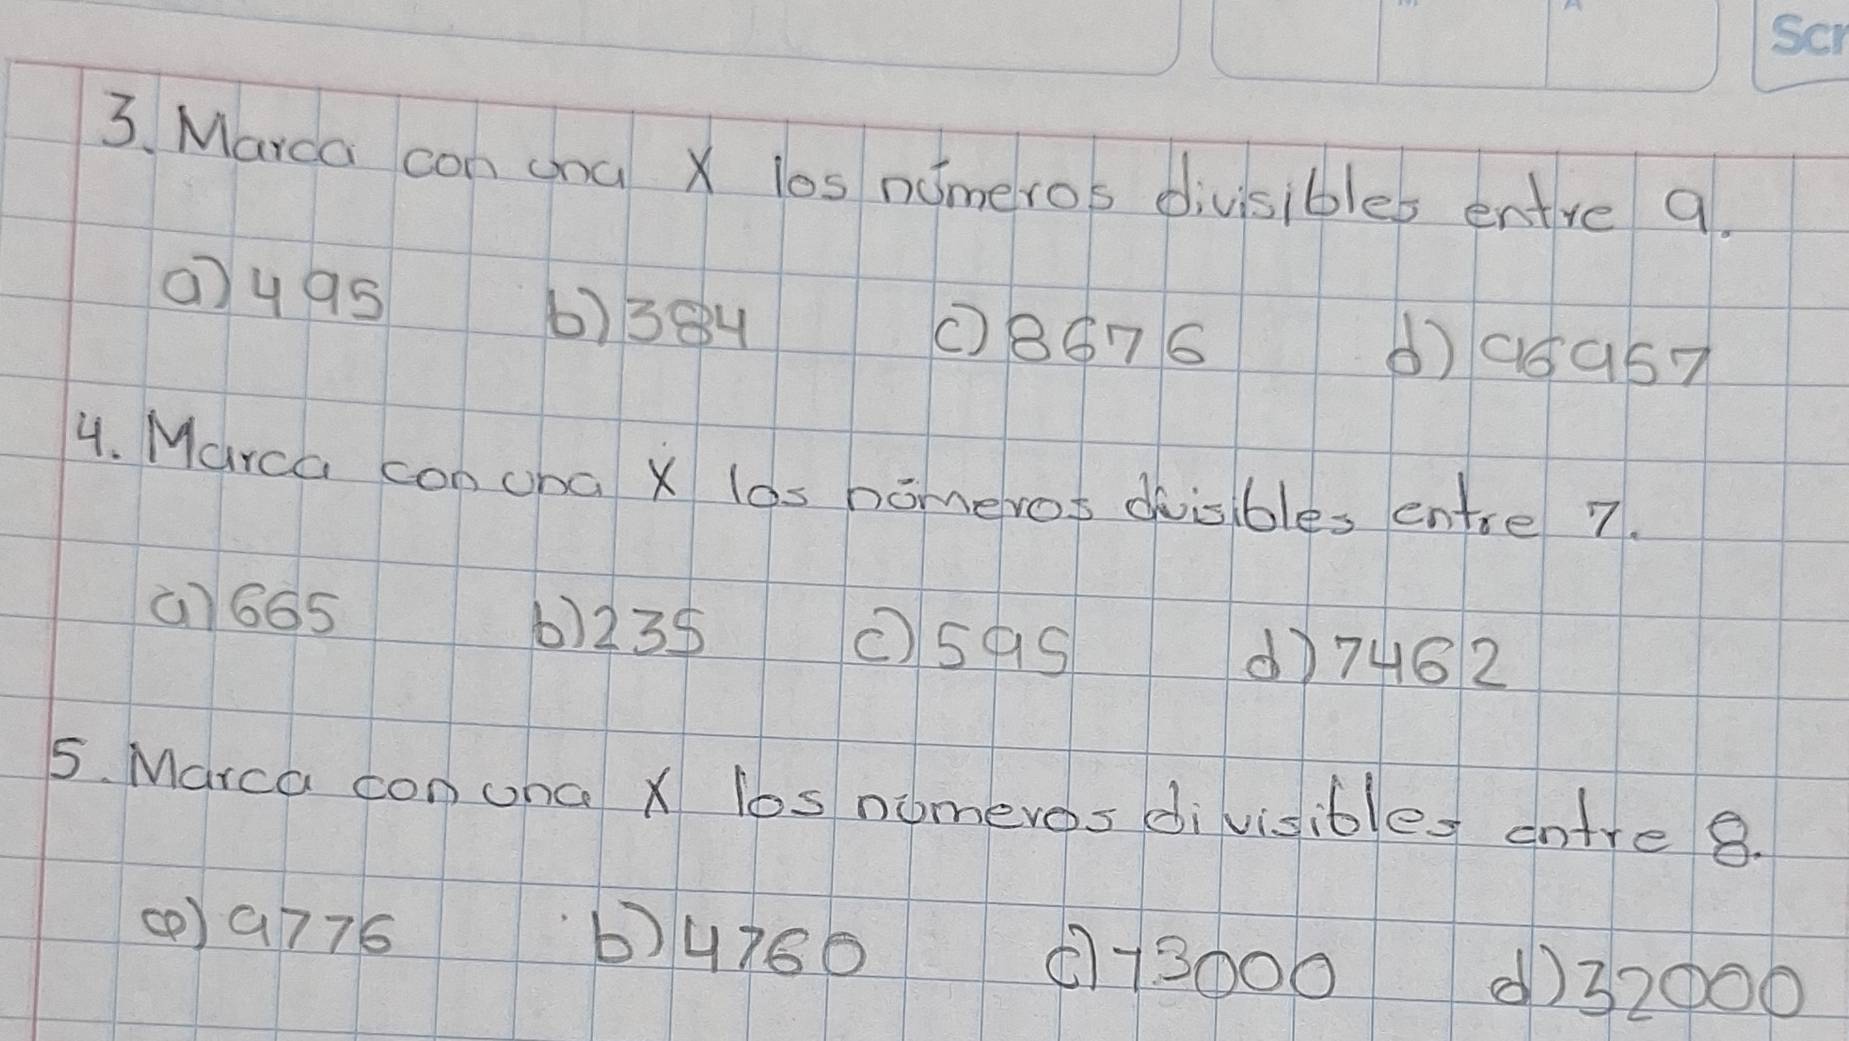 Scr
3. Marca con una X los números divisibles entre 9.
a) 495 b) 384 c) 8676 d) 96957
4. Marca con una X los números divisibles entre 7.
a) 665 b) 235 c) 595 d) 7462
5. Marca con una X los números divisibles entre 8.
a) 9776 b) 4760 c) 73000 d) 32000